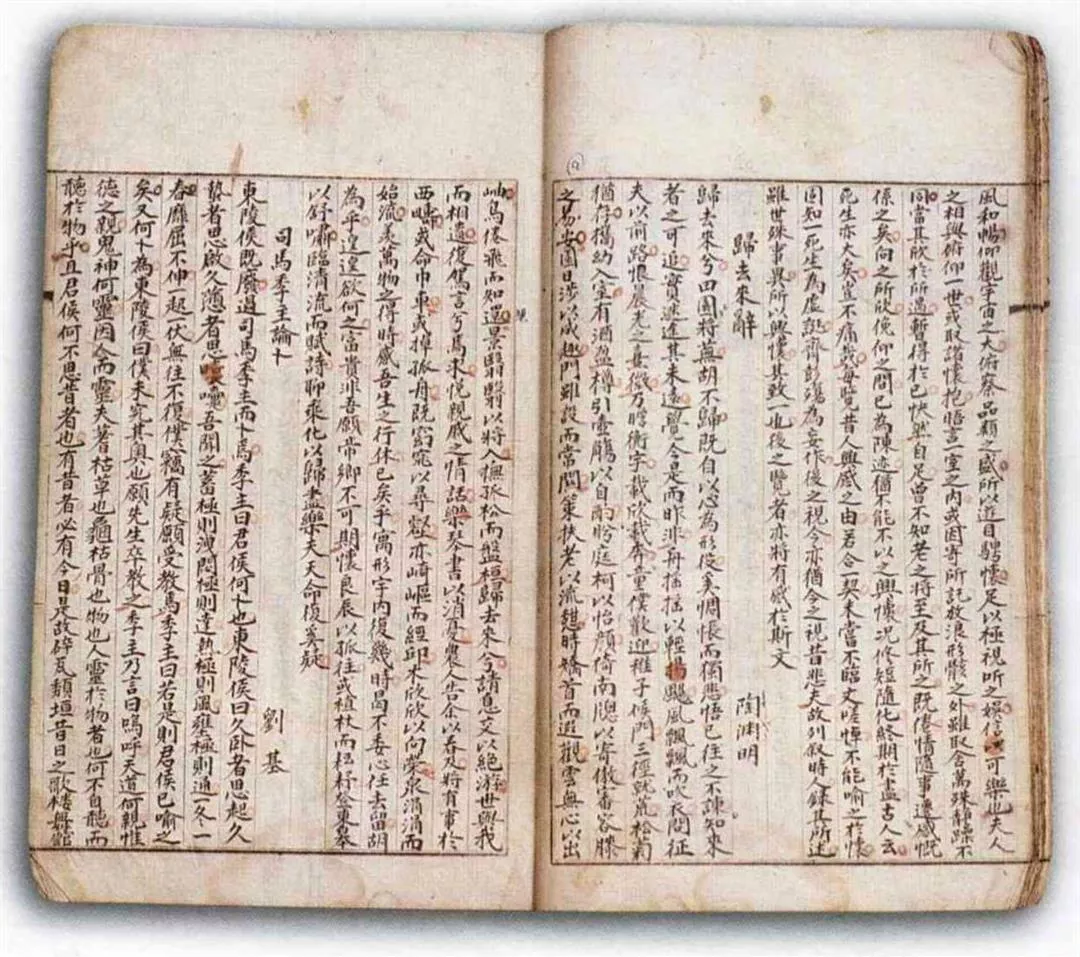 風和暢仰觀宇宙之大俯察品類之盛所以遊目騁懷足以極視聽之娛信可樂也夫人
之相與俯仰一世或取諸懷抱悟言一室之內或因寄所託放浪形骸之外雖取舍萬殊靜躁不
同當其欣於所遇暫得於己快然自足曾不知老之將至及其所之既倦情隨事遷感慨
係之矣向之所欣俛仰之間已為陳迹猶不能不以之興懷况修短隨化終期於盡古人云
死生亦大矣豈不痛哉每覽昔人興感之由若合一契未嘗不臨文嗟悼不能喻之於懷
固知一死生為虛誕齊彭殤為妄作後之視今亦猶今之視昔悲夫故列叙時人錄其所述
雖世殊事異所以興懷其致一也後之覽者亦將有感於斯文
歸去來辭 陶淵明
歸去來兮田園將蕪胡不歸既自以心為形役奚惆悵而獨悲悟已往之不諫知來
者之可追實迷途其未遠覺今是而昨非舟搖搖以輕揚風飄飄而吹衣問征
夫以前路恨晨光之熹微乃瞻衡宇載欣載奔童僕歡迎稚子候門三徑就荒松菊
猶存攜幼入室有酒盈樽引壺觴以自酌眄庭柯以怡顏倚南牕以寄傲審容膝
之易安園日涉以成趣門雖設而常關策扶老以流憩時矯首而遐觀雲無心以出
岫鳥倦飛而知還景翳翳以將入撫孤松而盤桓歸去來兮請息交以絕游世與我
而相遺復駕言兮焉求悅親戚之情話樂琴書以消憂農人告余以春及將有事於
西疇或命巾車或棹孤舟既窈窕以尋壑亦崎嶇而經邱木欣欣以向榮泉涓涓而
始流羨萬物之得時感吾生之行休已矣乎寓形宇內復幾時曷不委心任去留胡
為乎遑遑欲何之富貴非吾願帝鄉不可期懷良辰以孤往或植杖而耘耔登東皋
以舒嘯臨清流而賦詩聊乘化以歸盡樂夫天命復奚疑
司馬季主論卜 劉基
東陵侯既廢過司馬季主而卜焉季主曰君侯何卜也東陵侯曰久卧者思起久
蟄者思啟久懣者思嚏吾聞之蓄極則洩閟極則達熱極則風壅極則通一冬一
春靡屈不伸一起一伏無往不復僕竊有疑願受教焉季主曰若是則君侯已喻之
矣又何卜為東陵侯曰僕未究其奧也願先生卒教之季主乃言曰嗚呼天道何親惟
德之親鬼神何靈因人而靈夫蓍枯草也龜枯骨也物也人靈於物者也何不自聽而
聽於物乎且君侯何不思昔者也有昔者必有今日是故碎瓦頹垣昔日之歌樓舞館